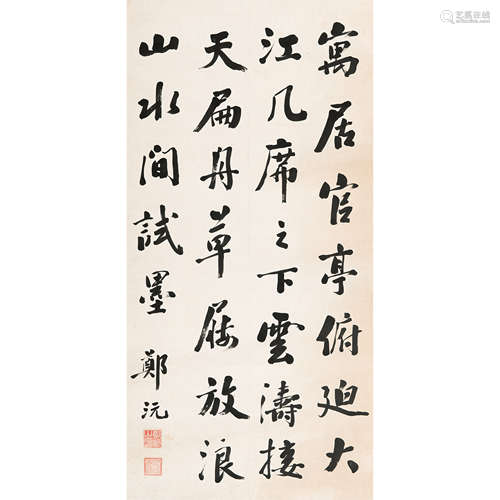 寓居官亭俯迫大
江几席之下雲濤接
天扁舟草屨放浪
山水間試墨
鄭沅